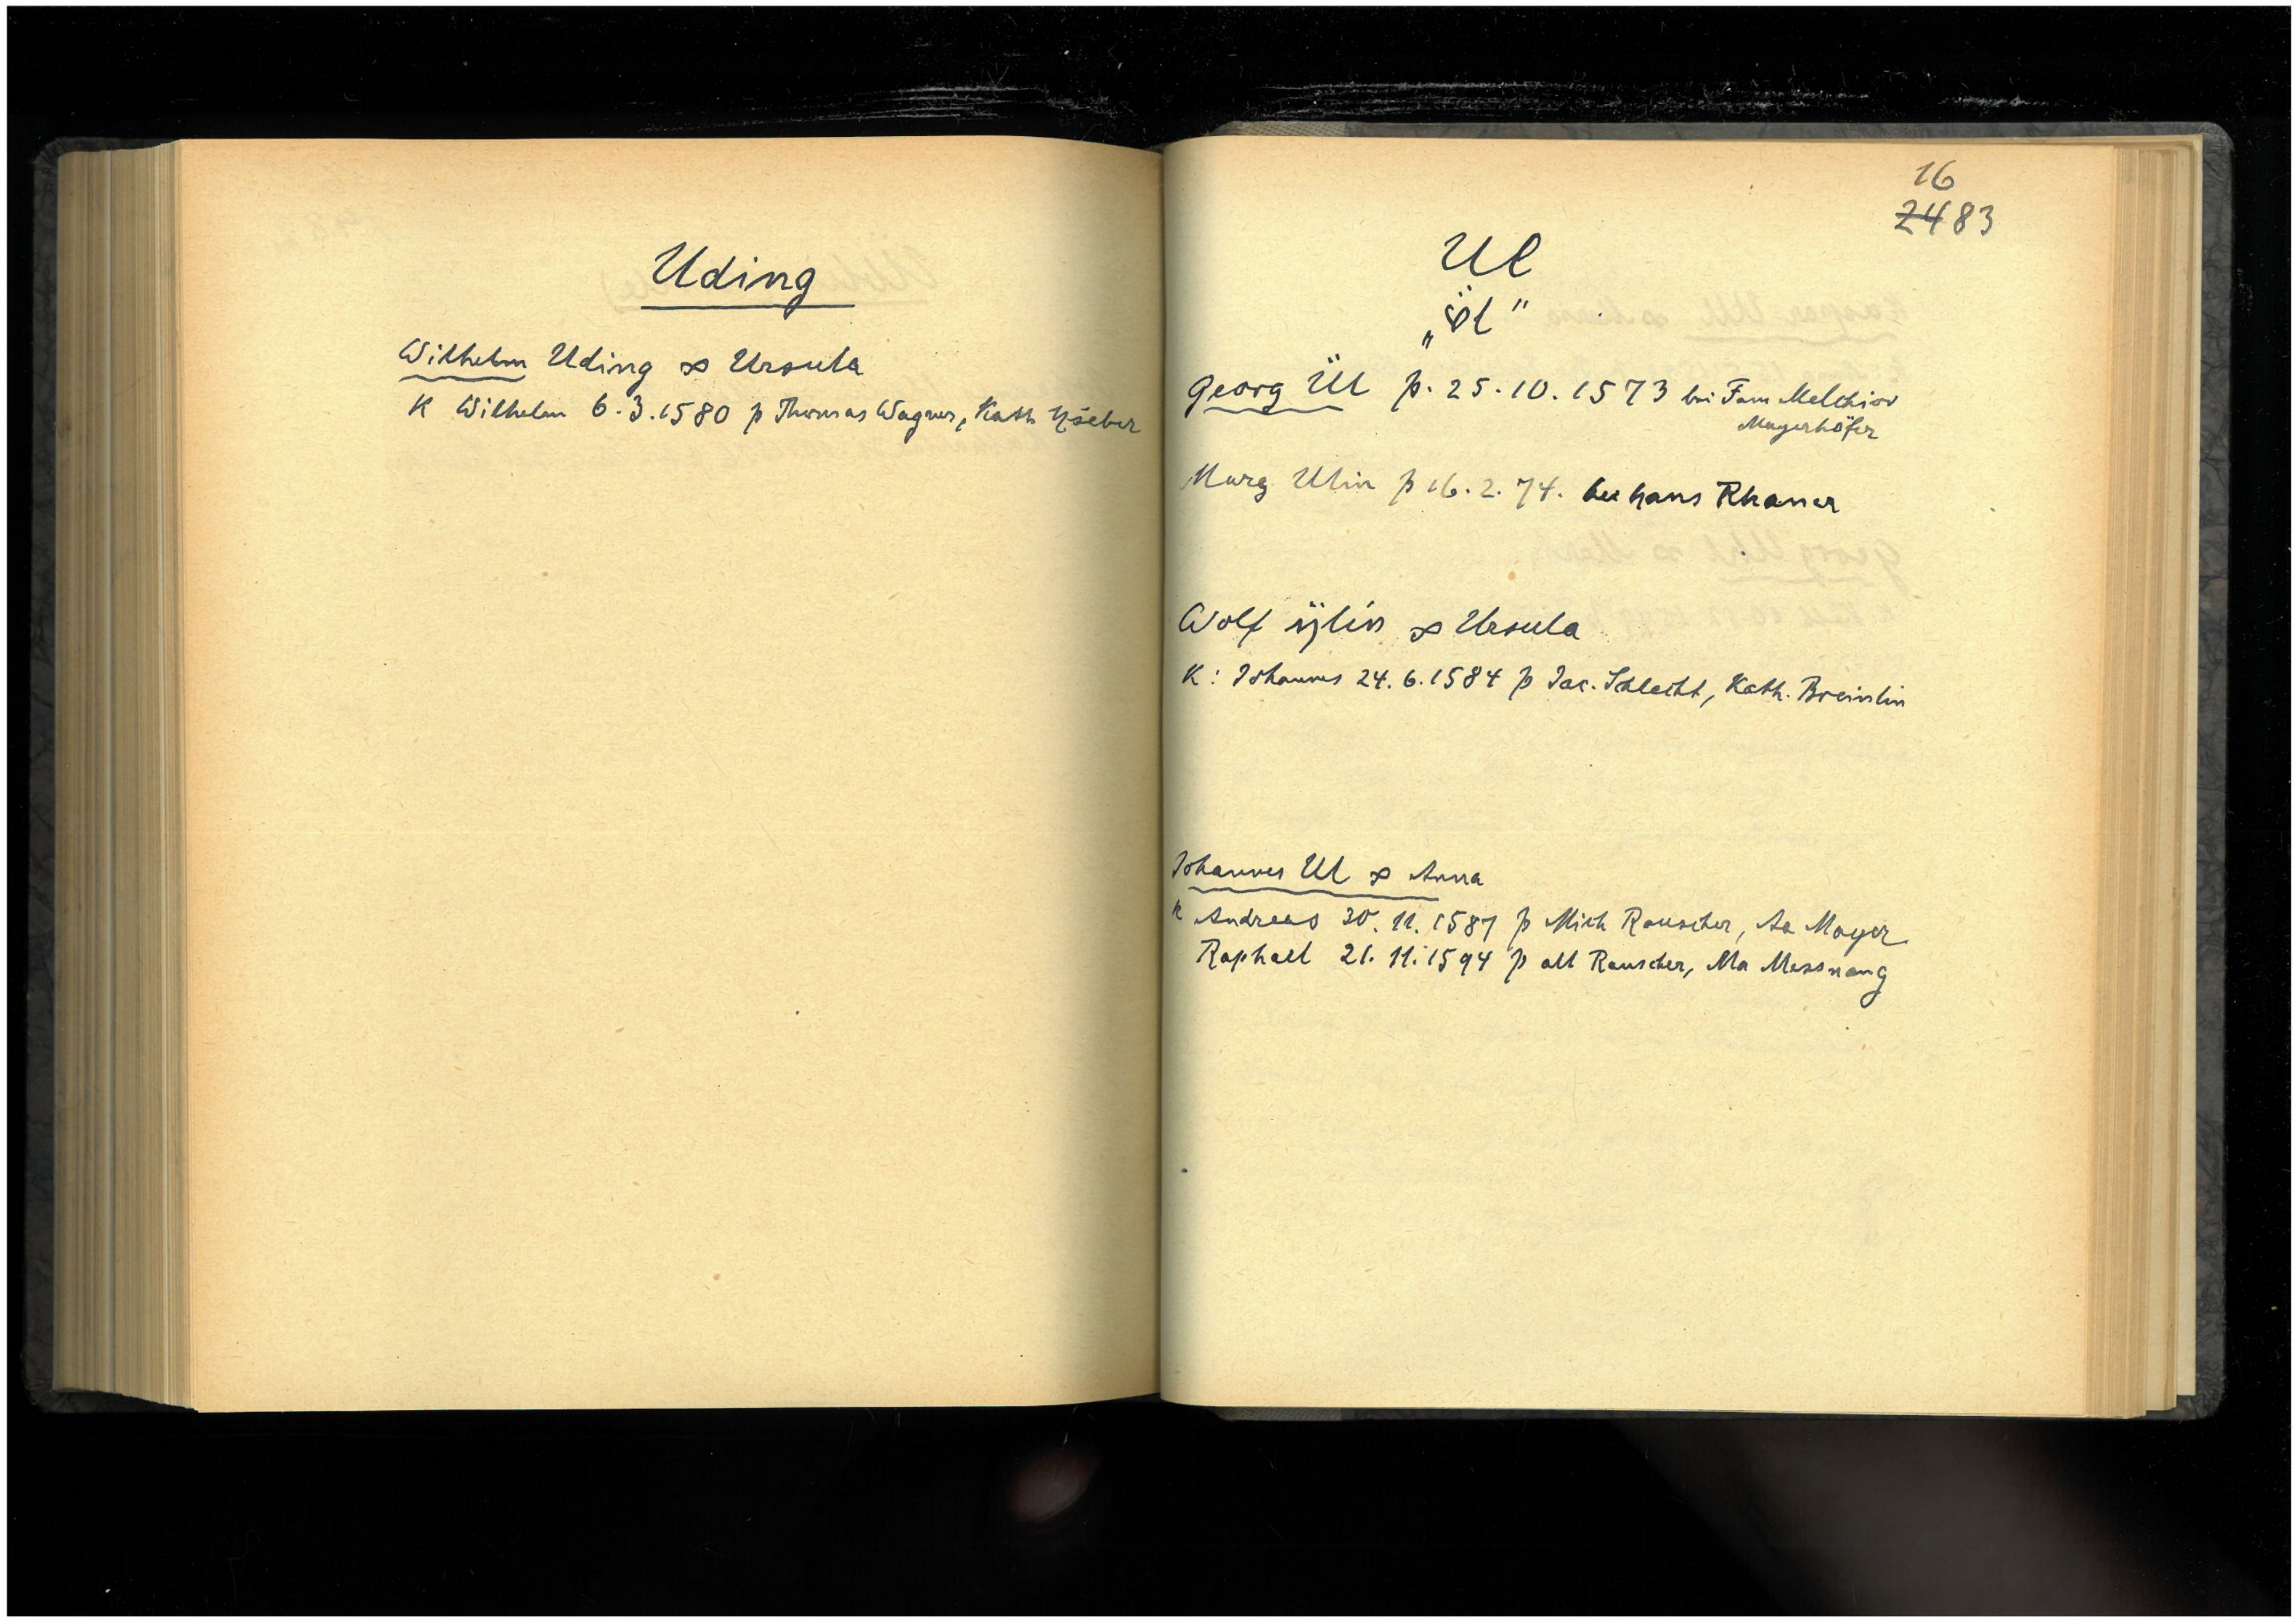 Uding
Wilhelm Uding ∞ Ursula
K Wilhelm 6.3.1580 p Thomas Wagner, Kath
16
2483
Ul
„Öl"
Georg Ül p. 25.10.1573 bei Fam Melchior
Mayerhöfer
Marg Ulin p 16.2.74. bei Hans Rhaner
Wolf ÿlin ∞ Ursula
K: Johannes 24.6.1584 p Jac. Schlecht, Kath. Breinlin
Johannes Ul ∞ Anna
K Andreas 30.11.1587 p Mich Rauscher, Aa Mayer
Raphael 21.11.1594 p alt Rauscher, Ma Messnang